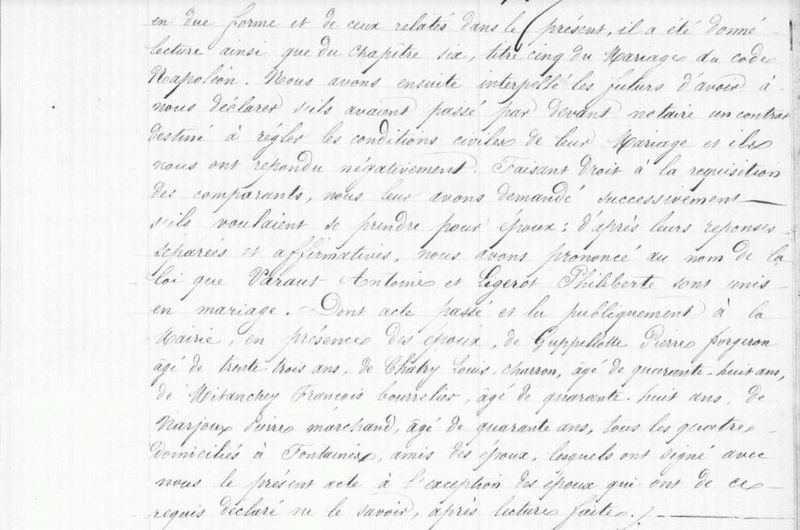 en due forme et de ceux relatés dans le présent, il a été donné
lecture ainsi que du chapitre six, titre cinq du Mariage du code
Napoléon. Nous avons ensuite interpellé les futurs d'avoir à
nous déclarer s'ils avaient passé par devant notaire un contrat
destiné à régler les conditions civiles de leur Mariage et ils
nous ont repondu négativement. Faisant droit à la requisition
des comparants, nous leur avons demandé successivement
s'ils voulaient se prendre pour époux; d'après leurs reponses
séparées et affirmatives, nous avons prononcé au nom de la
loi que Varaut Antoine et Ligerot Philiberte sont unis
en mariage. Dont acte passé et lu publiquement à la
Mairie, en présence des époux, de Guppillotte Pierre forgeron
âgé de trente trois ans, de Chatry Louis charron, âgé de quarante-huit ans,
de Mitanchey François bourrelier, âgé de quarante-huit ans, de
Marjoux Pierre marchand, âgé de quarante ans, tous les quatre
domiciliés à Fontaines, amis des époux, lesquels ont signé avec
nous le présent acte à l'exception des époux qui ont de ce
requis déclaré ne le savoir, après lecture faite./.